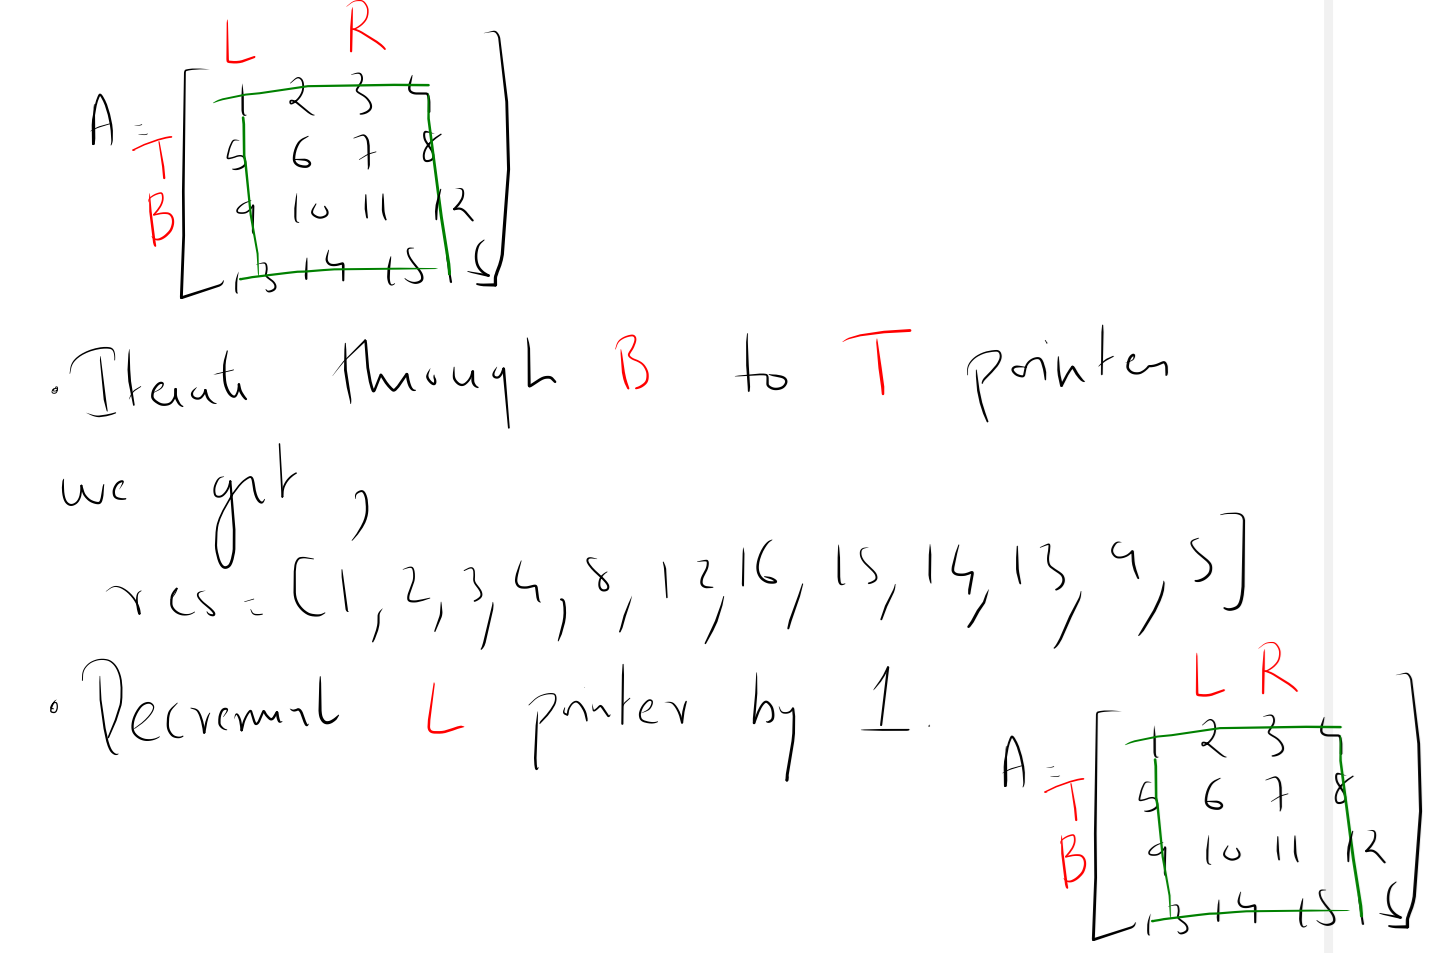 L R
A = 1 2 3 4
T 5 6 7 8
B 9 10 11 12
13 14 15 16
• Iterate through B to T pointer
we get,
res = [1, 2, 3, 4, 8, 12, 16, 15, 14, 13, 9, 5]
• Decrement L pointer by 1.
L R
A = 1 2 3 4
T 5 6 7 8
B 9 10 11 12
13 14 15 16